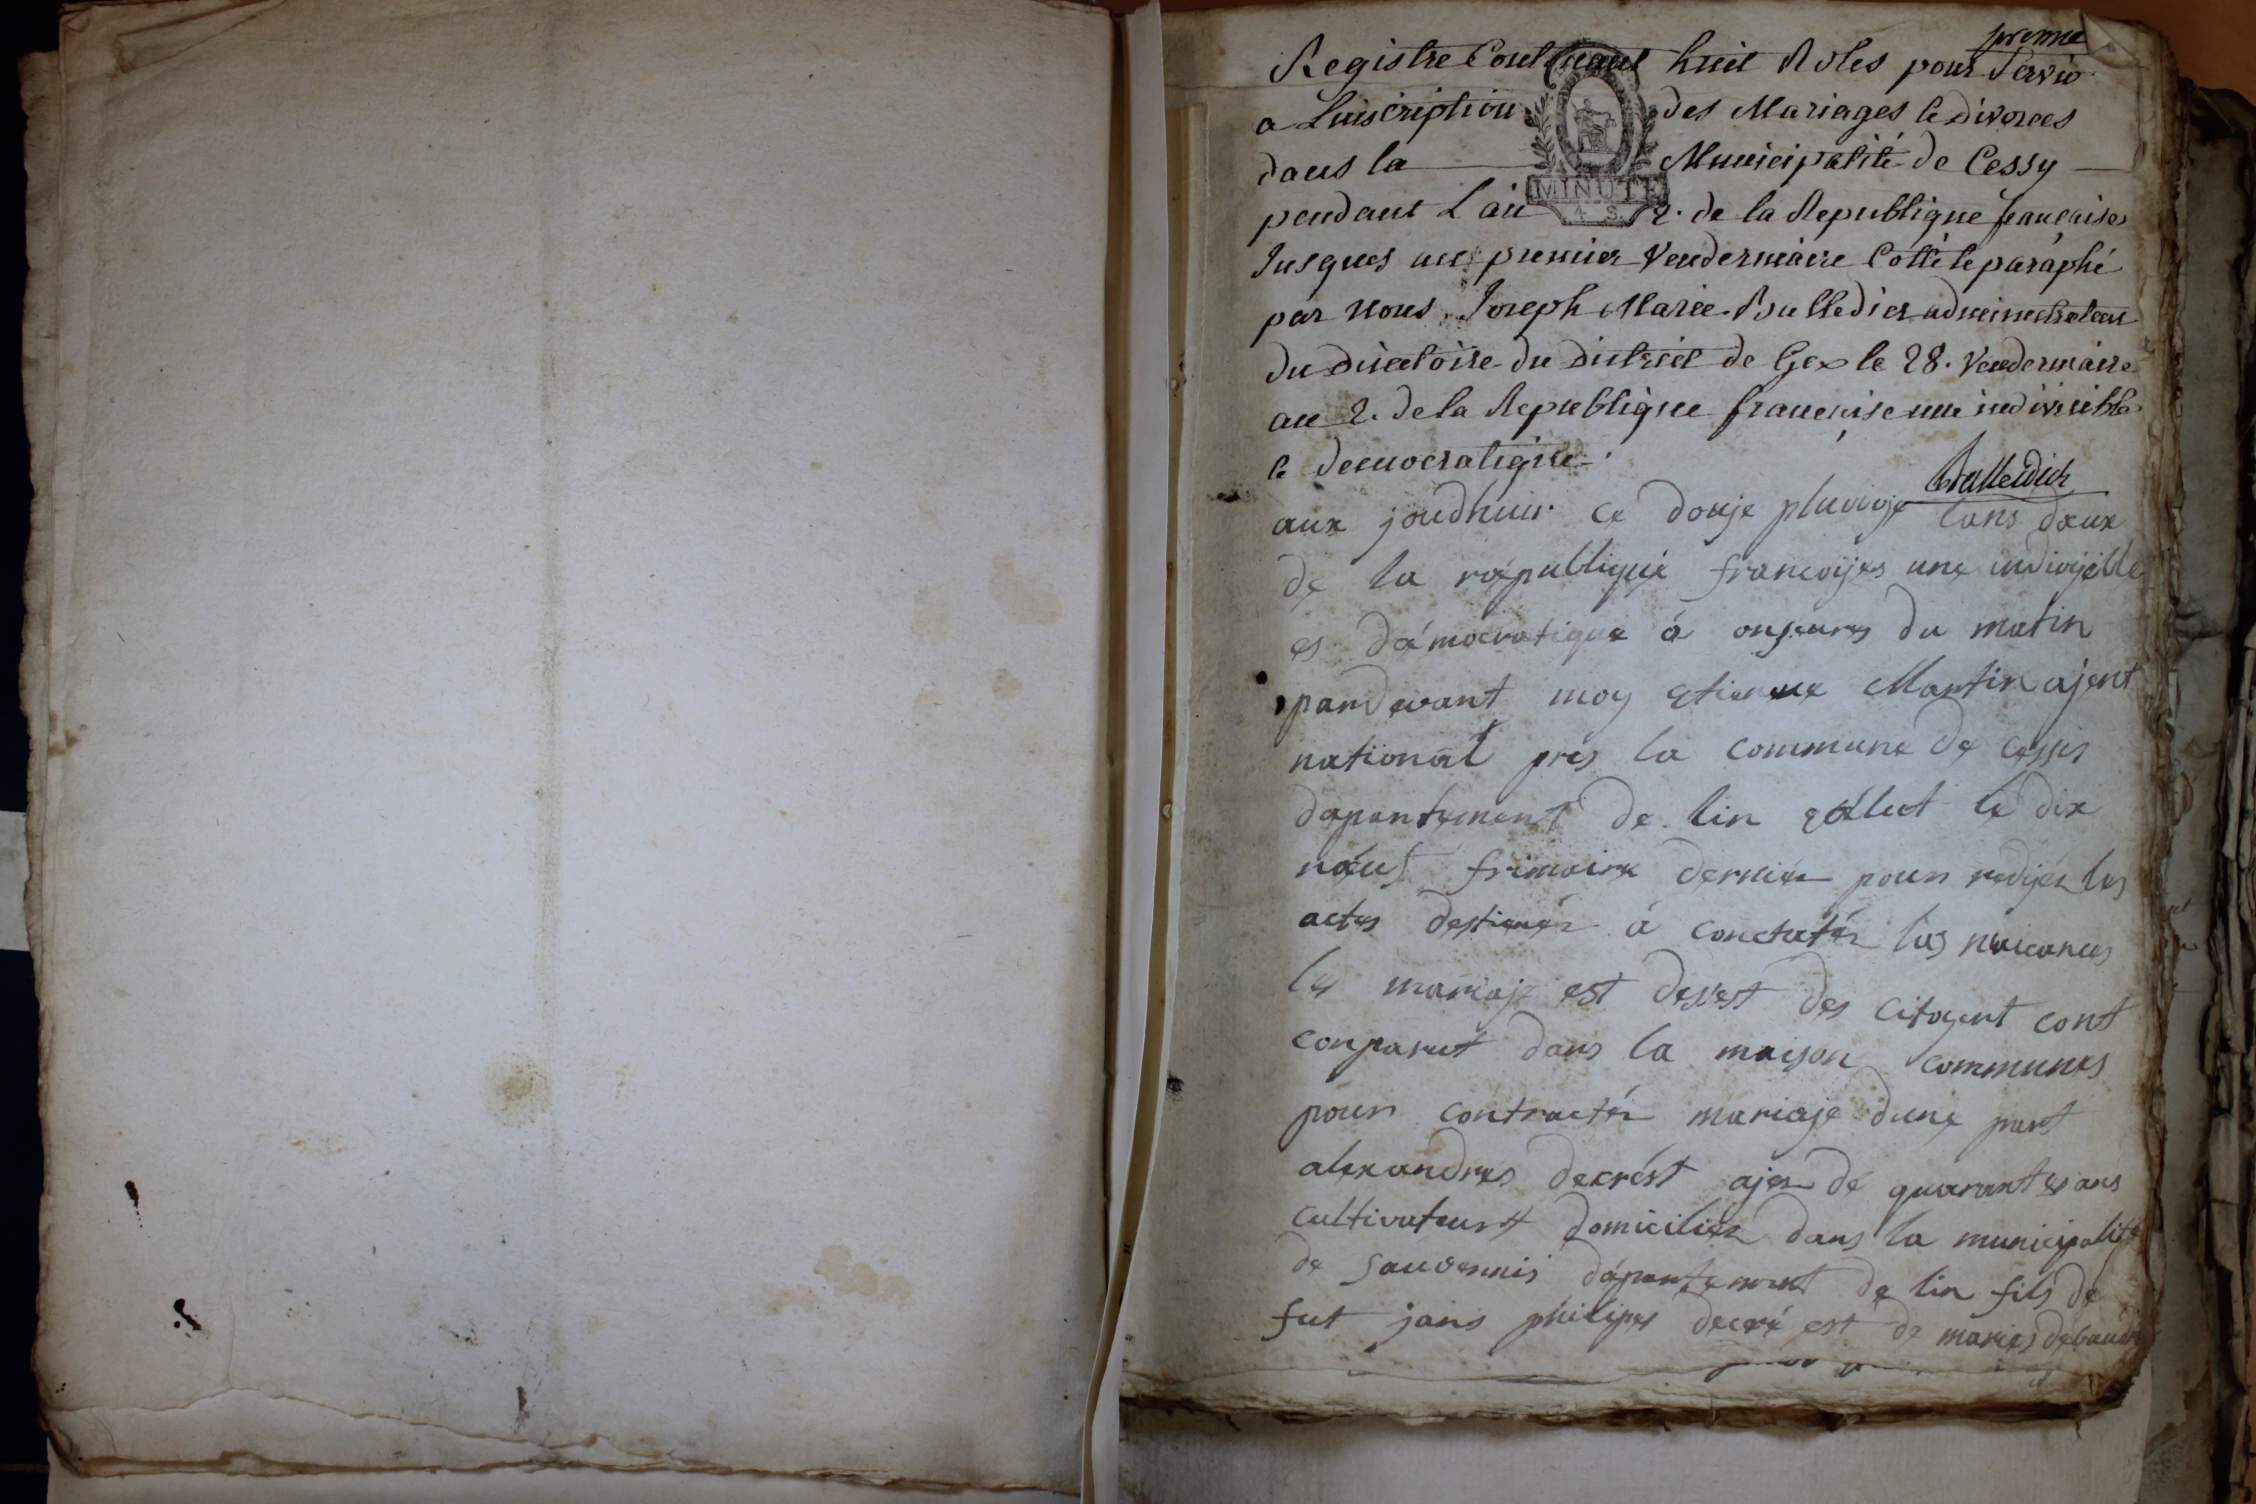 premie
Registre Contenant huit Roles pour servir
a Linscription des Mariages le divorces
dans la Municipalité de Cessy
pendant L'an 2. de la Republique francaise
Jusques au premier Vendermiaire Cotté le paraphé
par nous Joseph Marie Balledier administrateur
du Directoire du District de Gex le 28. Vendermiaire
an 2. de la Republique francaise une indivisible
le Democratique.
Balleidier
MINUTE
aux joudhuir ce douje pluvioje lans deux
de la république francoijes une indivijible
es démocratique á onjeures du matin
pardevant moy etienne Martin ajent
national pres la commune de cessis
département de lin éllut le dix
neuf frimaire dernier pour redijer les
actes destinér á conctatér les naicances
les mariaje est desest des citoyent cont
comparut dans la maison communes
pour contractér mariaje dune part
alexandres decrést ajer de quarantes ans
cultivateurt domicilier dans la municipalité
de sauvernis département de lin fils de
fut jans philipes decré est de maries